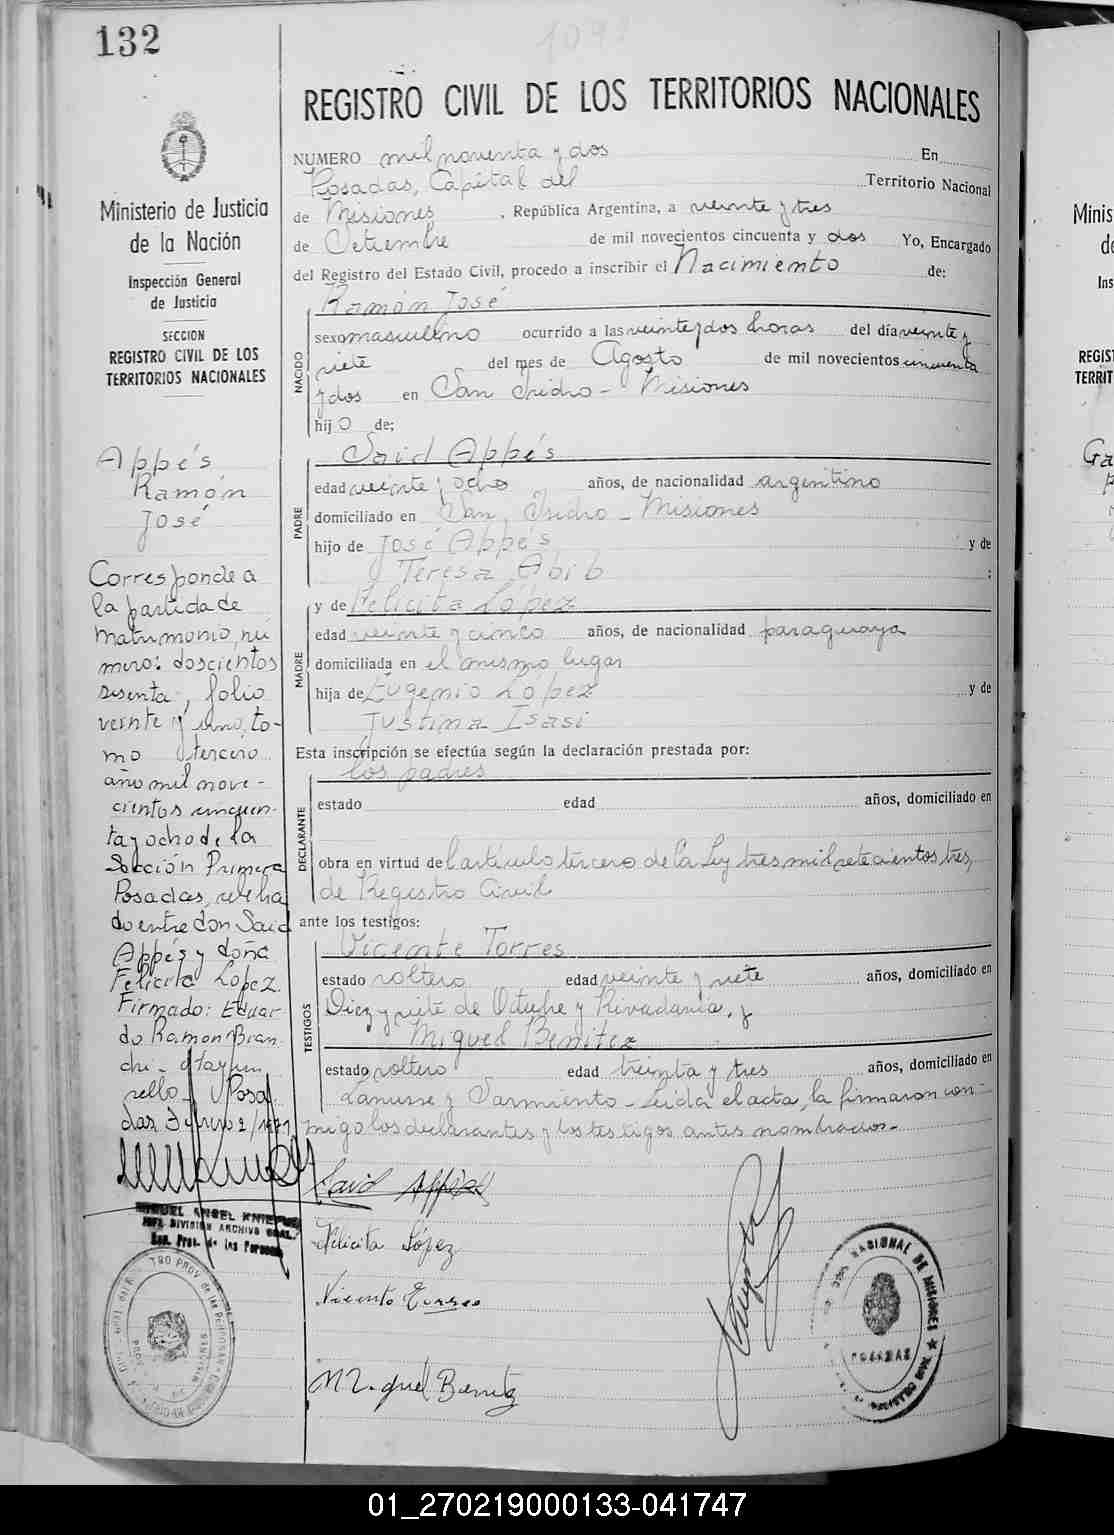 132
1092
REGISTRO CIVIL DE LOS TERRITORIOS NACIONALES
Ministerio de Justicia
de la Nación
Inspección General
de Justicia
SECCION
REGISTRO CIVIL DE LOS
TERRITORIOS NACIONALES
Appés
Ramón
José
Corresponde a
la partida de
matrimonio, nú
mero: doscientos
sesenta, folio
veinte y uno, to-
mo tercero
año mil nove-
cientos cincuen-
ta y ocho de la
Sección Primera
Posadas, celebra
do entre don Said
Appés y doña
Felicita López.
Firmado: Eduar
do Ramon Bran
chi-
rello- Posa
das
MIGUEL ANGEL
JEFE DIVISION ARCHIVO GRAL.
Reg. Prov. de las Personas
NUMERO mil noventa y dos En
Posadas, Capital del Territorio Nacional
de Misiones, República Argentina, a veinte y tres
de Setiembre de mil novecientos cincuenta y dos Yo, Encargado
del Registro del Estado Civil, procedo a inscribir el Nacimiento de:
Ramón José
NACIDO
sexo masculino ocurrido a las veinte y dos horas del día veinte y
siete del mes de Agosto de mil novecientos cincuenta
y dos en San Isidro - Misiones
hijo de:
Said Appés
PADRE
edad veinte y ocho años, de nacionalidad argentino
domiciliado en San Isidro - Misiones
hijo de José Appés y de
Teresa Abib :
y de Felicita López
MADRE
edad veinte y cinco años, de nacionalidad paraguaya
domiciliada en el mismo lugar
hija de Eugenio López y de
Justina Isasi
Esta inscripción se efectúa según la declaración prestada por:
los padres
DECLARANTE
estado edad años, domiciliado en
obra en virtud del artículo tercero de la Ley tres mil setecientos tres,
de Registro Civil
ante los testigos:
Vicente Torres
TESTIGOS
estado soltero edad veinte y siete años, domiciliado en
Diez y siete de Octubre y Rivadavia, y
Miguel Benitez
estado soltero edad treinta y tres años, domiciliado en
Lanusse y Sarmiento - Leída el acta, la firmaron con-
migo los declarantes y los testigos antes nombrados.-
Said Appés
Felicita López
Vicente Torres
Miguel Benitez
NACIONAL DE MISIONES
POSADAS
Minis
de
Ins
REGIST
TERRIT
Ga
01_270219000133-041747